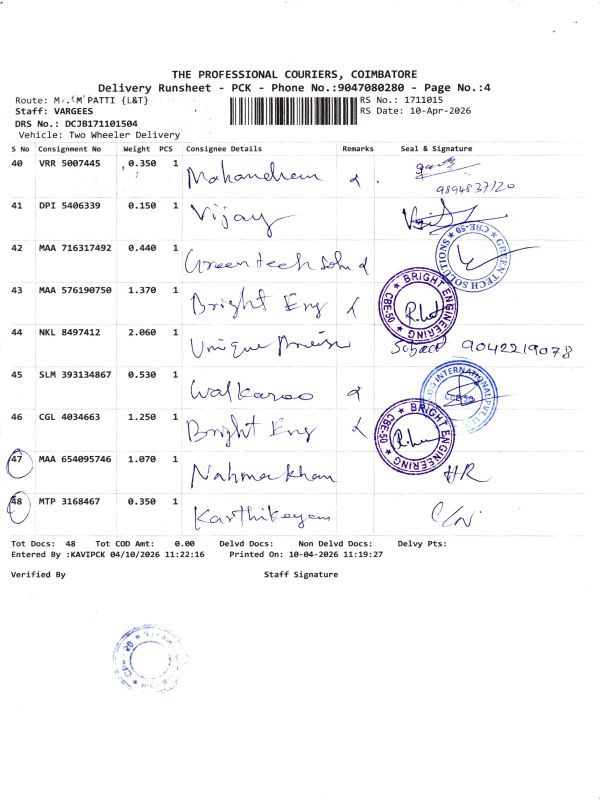 THE PROFESSIONAL COURIERS, COIMBATORE
Delivery Runsheet - PCK - Phone No.:9047080280 - Page No.:4
Route: PATTI {L&T}
RS No.: 1711015
Staff: VARGEES
RS Date: 10-Apr-2026
DRS No.: DCJB171101504
Vehicle: Two Wheeler Delivery
S No Consignment No Weight PCS Consignee Details Remarks Seal & Signature
40 VRR 5007445 0.350 1
41 DPI 5406339 0.150 1 Vijay
GREEN TECH SOLUTIONS ★ CBE-50 ★
42 MAA 716317492 0.440 1 Greentech
43 MAA 576190750 1.370 1 Bright Eng
BRIGHT ENGINEERING ★ CBE-50 ★
44 NKL 8497412 2.060 1 Unique 9042219078
45 SLM 393134867 0.530 1 Walkaroo
INTERNATIONAL PVT. LTD.
46 CGL 4034663 1.250 1 Bright Eng
BRIGHT ENGINEERING ★ CBE-50 ★
47 MAA 654095746 1.070 1 HR
48 MTP 3168467 0.350 1 Karthikeyan
Tot Docs: 48 Tot COD Amt: 0.00 Delvd Docs: Non Delvd Docs: Delvy Pts:
Entered By :KAVIPCK 04/10/2026 11:22:16 Printed On: 10-04-2026 11:19:27
Verified By Staff Signature